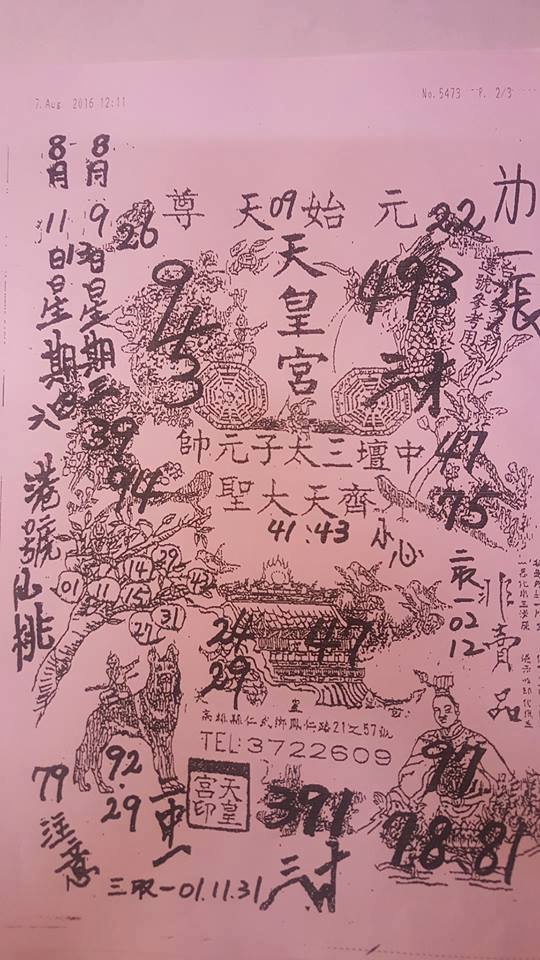 7.Aug 2016 12:11
No.5473 P. 2/3
8月9日星期二
8月11日星期四
六
港號仙桃
26
元始天尊
09
22
天皇宮
9
4
3
493
三才
39
94
中壇三太子元帥
齊天大聖
47
75
41.43
小心
二取一02
12
非賣品
01
11
14
15
29
42
21
31
24
29
47
高雄縣仁武鄉鳳仁路21之57號
TEL:3722609
92
.29
79
注意
天皇宮印
391
三才
97
78.81
三取一01.11.31